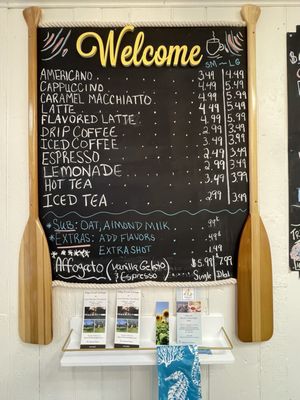 Welcome
SM - LG
AMERICANO 3.49 4.49
CAPPUCCINO 4.49 5.49
CARAMEL MACCHIATTO 4.99 5.99
LATTE 4.49 5.49
FLAVORED 'LATTE' 4.99 5.99
DRIP COFFEE 2.99 3.99
ICED COFFEE
ESPRESSO 2.49 3.49
LEMONADE
HOT TEA 3.99
ICED TEA 2.99 3.99
*SUB: OAT, ALMOND MILK .99¢
*EXTRAS: ADD FLAVORS
EXTRA SHOT 1.49
Affogato (vanilla Gelato $5.99 / 7.99
& Espresso) Single / Dbl